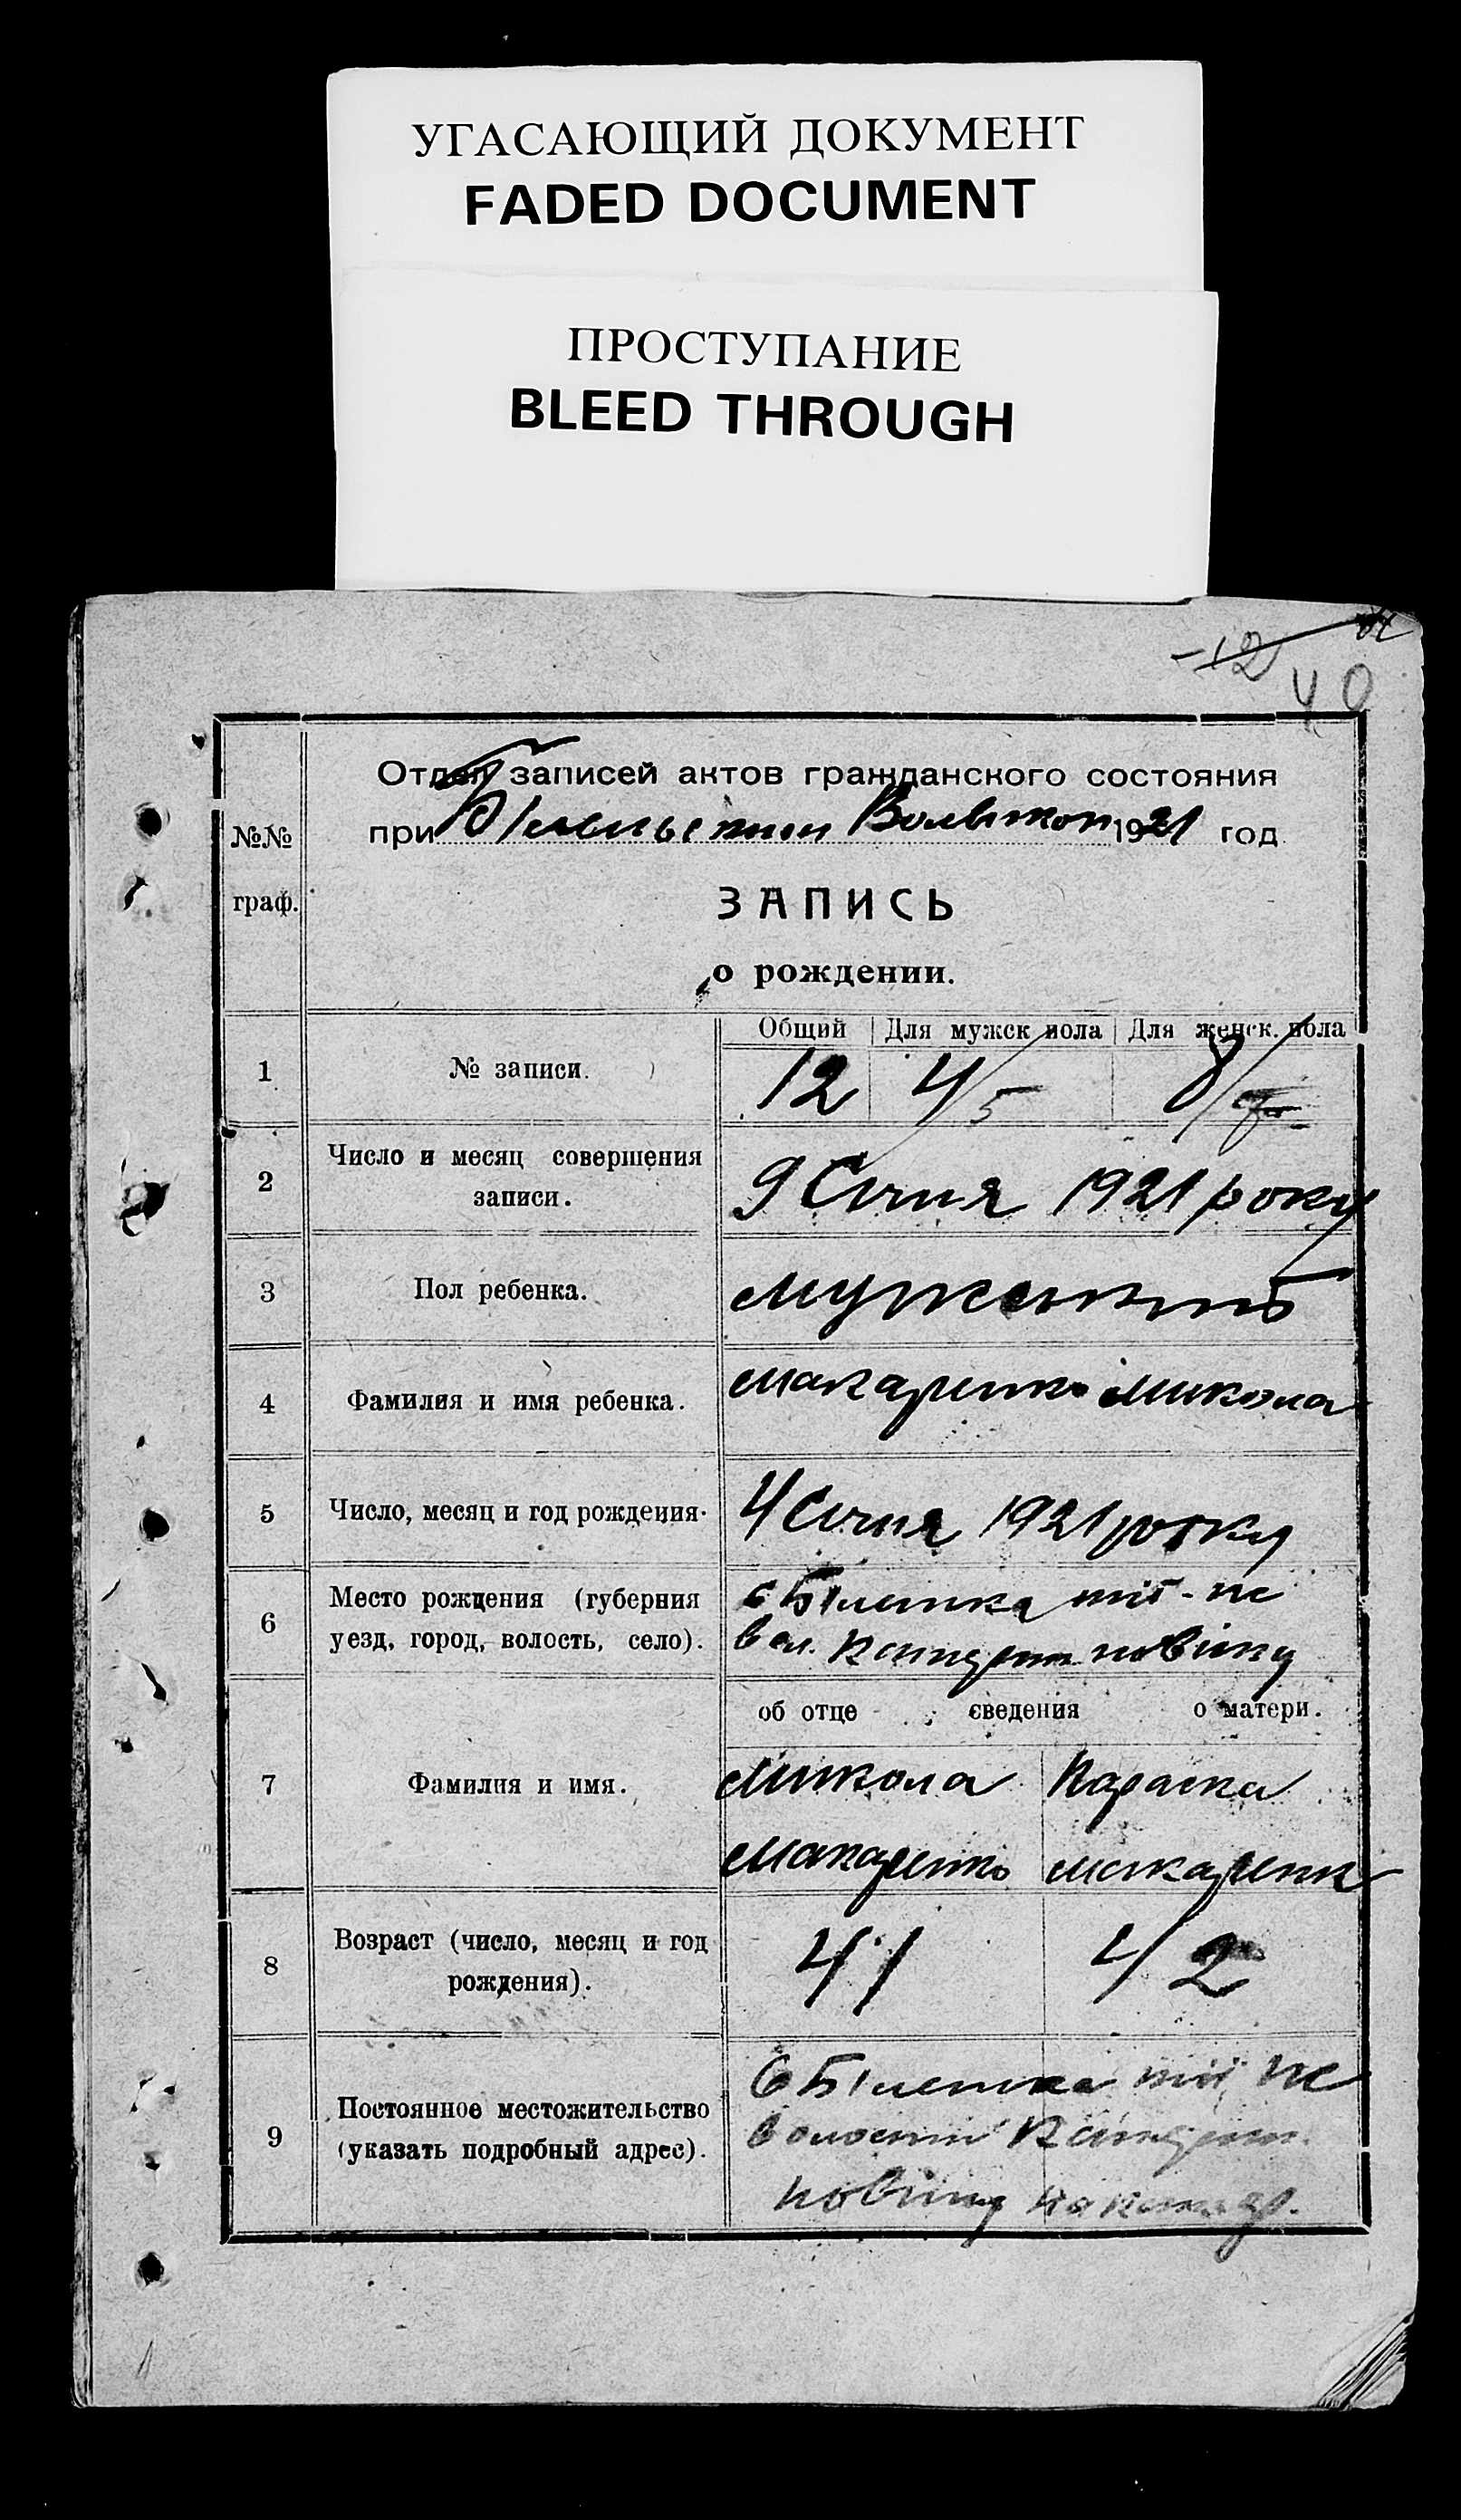 УГАСАЮЩИЙ ДОКУМЕНТ
FADED DOCUMENT
ПРОСТУПАНИЕ
BLEED THROUGH
12
40
№№ граф.
Отдел записей актов гражданского состояния
при 1921 год
ЗАПИСЬ
о рождении.
Общий Для мужск пола Для женск. пола
1 № записи. 12 4/5 8/
2 Число и месяц совершения записи. 9 Січня 1921 року
3 Пол ребенка.
4 Фамилия и имя ребенка. Макаренко Микола
5 Число, месяц и год рождения. 4 Січня 1921 року
6 Место рождения (губерния
уезд, город, волость, село).
с Білетика тії-же
вол. повіту
об отце сведения о матери.
7 Фамилия и имя.
Микола Параска
Макаренко Макаренк
8 Возраст (число, месяц и год
рождения).
41 42
9 Постоянное местожительство
(указать подробный адрес).
с тії же
волости
повіту